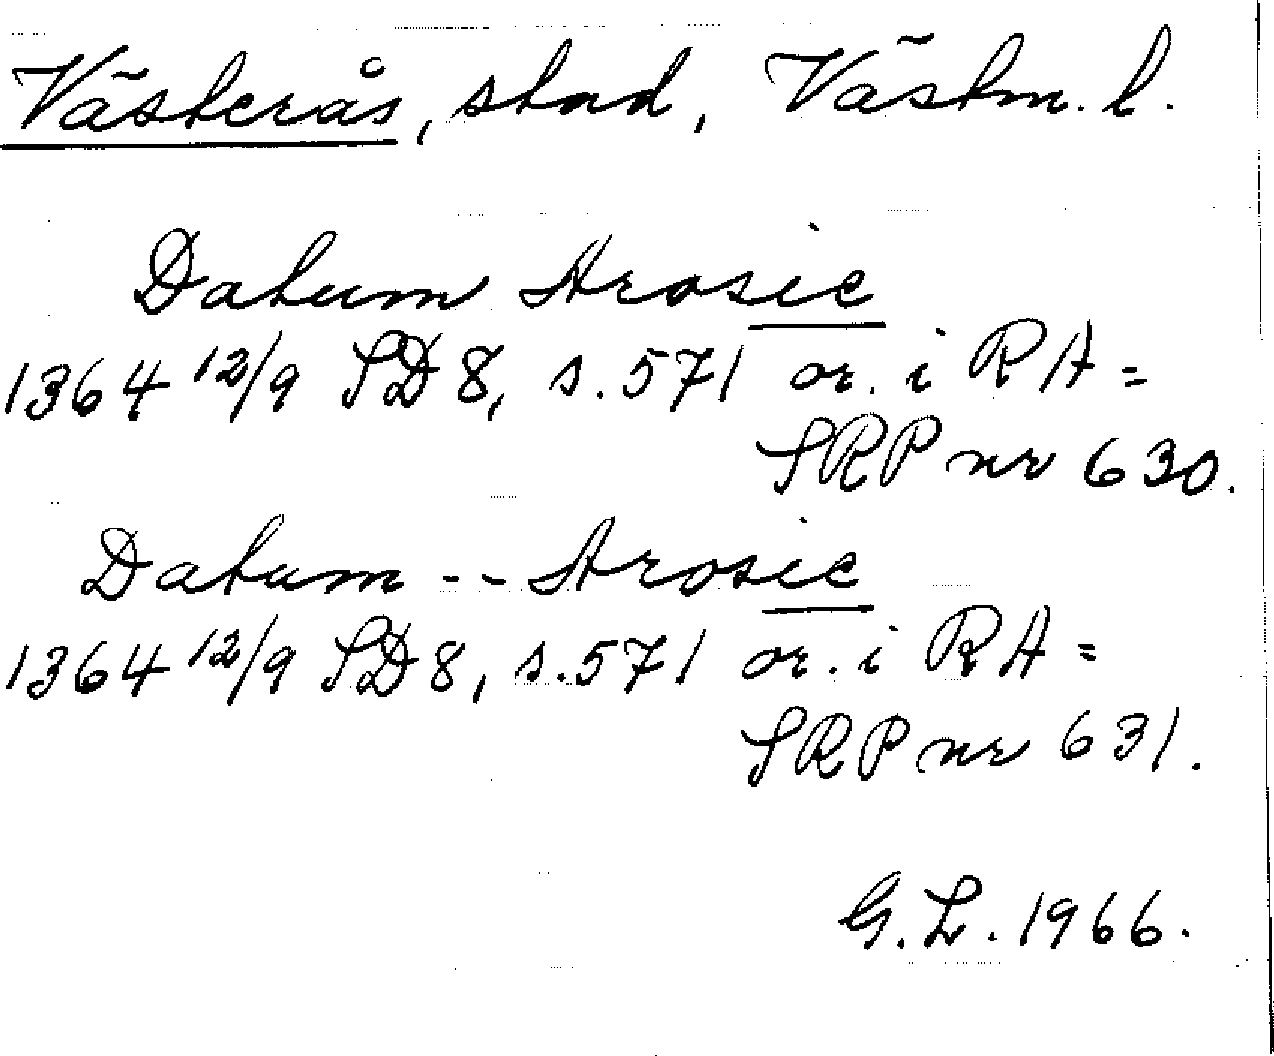 Västerås, stad, Västm. l.
Datum Arosie
1364 12/9 SD 8, s. 571 or. i RA =
SRP nr 630.
Datum -- Arosie
1364 12/9 SD 8, s. 571 or. i RA =
SRP nr 631.
G. L. 1966.